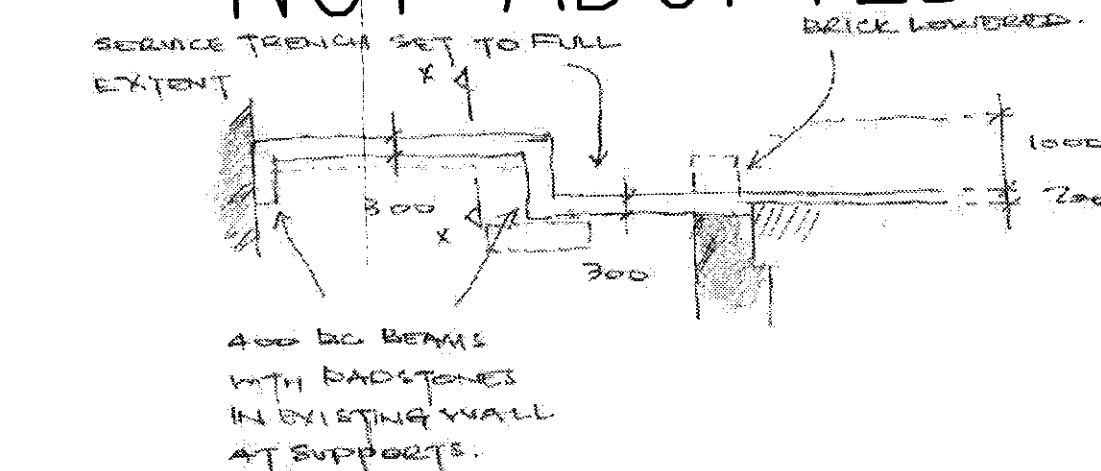 NOT ADOPTED
SERVICE TRENCH SET TO FULL
EXTENT
BRICK LOWERED.
X
1000
200
300
X
300
400 RC BEAMS
WITH PADSTONES
IN EXISTING WALL
AT SUPPORTS.